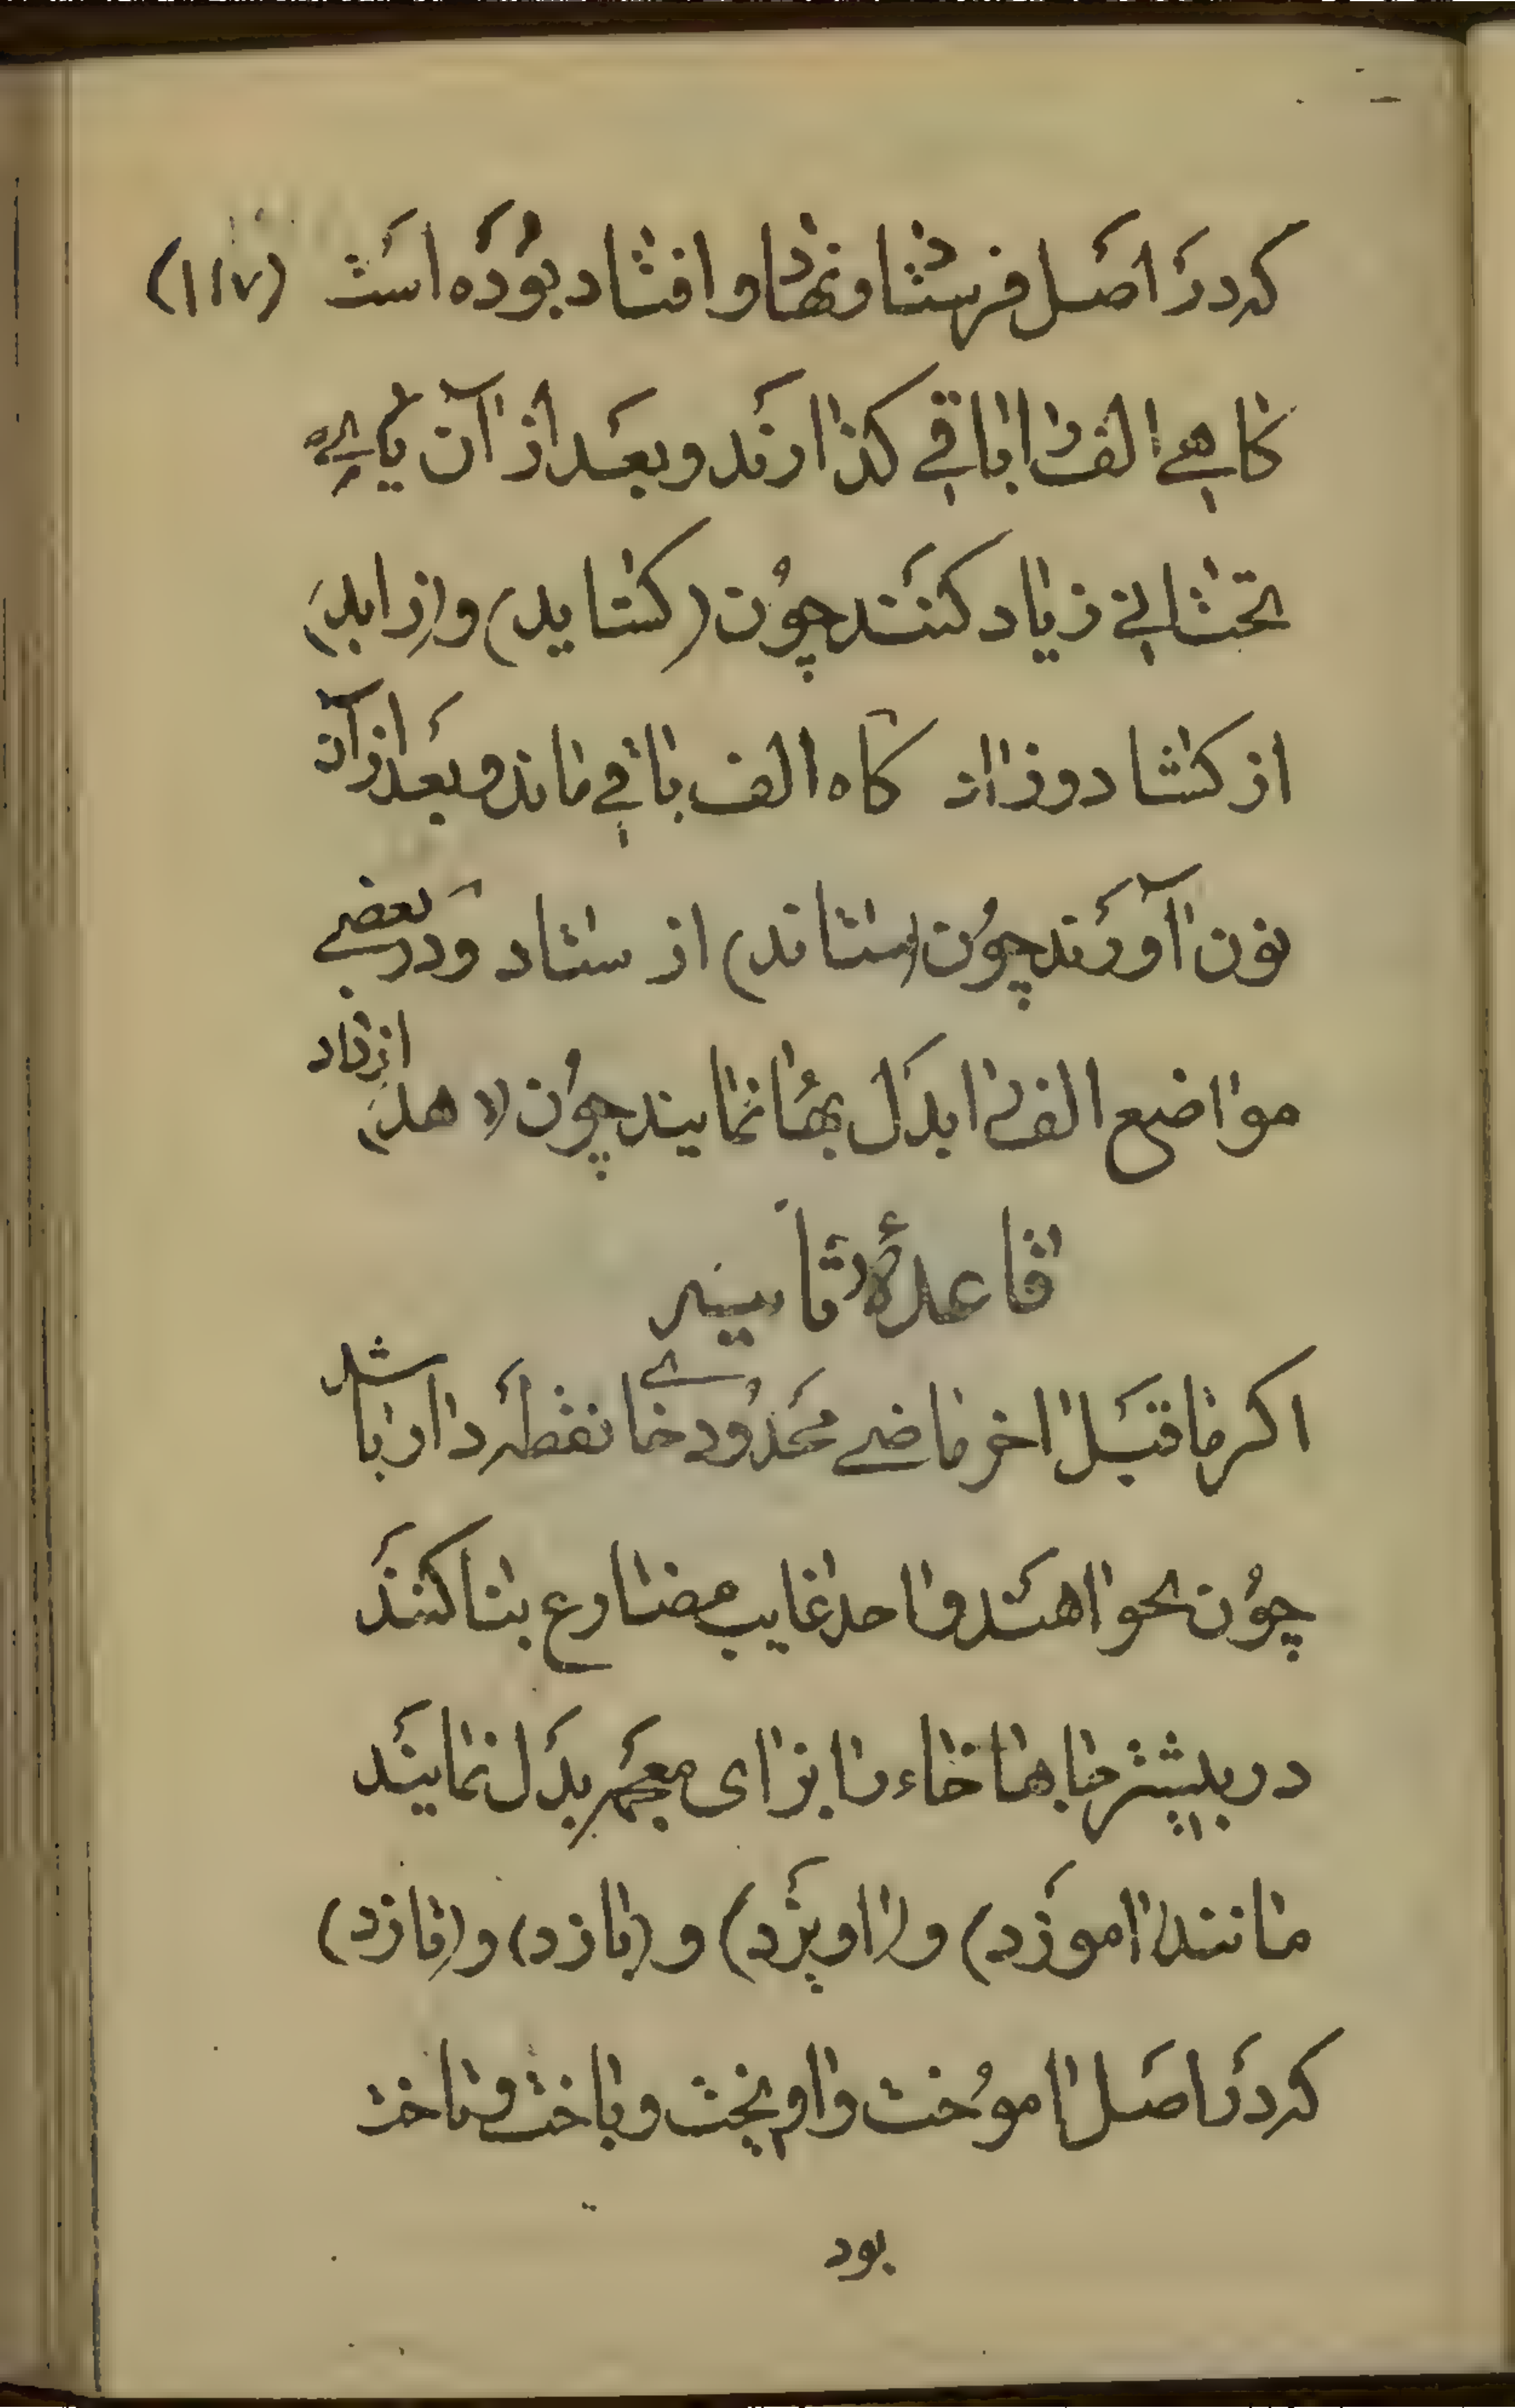 که در اصل فرستاد و نهاد و افتاد بوده است (۱۱۷)
کاهی الف را باقی کذارند و بعد از آن یای
تحتانی زیاد کنند چون (کشاید) و (زاید)
از کشاد و زاد کاه الف باقی ماند و بعد از آن
نون آورند چون (ستاند) از ستاد و در بعضی
مواضع الف را بدل بها نمایند چون (دهد) از داد
قاعدهٔ ثانیه
اکر ماقبل اخر ماضی محدود خای نقطه دار باشد
چون بخواهند واحد غایب مضارع بنا کنند
در بیشتر جاها خاء را بزای معجمه بدل نمایند
مانند (اموزد) و (اویزد) و (بازد) و (تازد)
که در اصل اموخت و اویخت و باخت و تاخت
بود